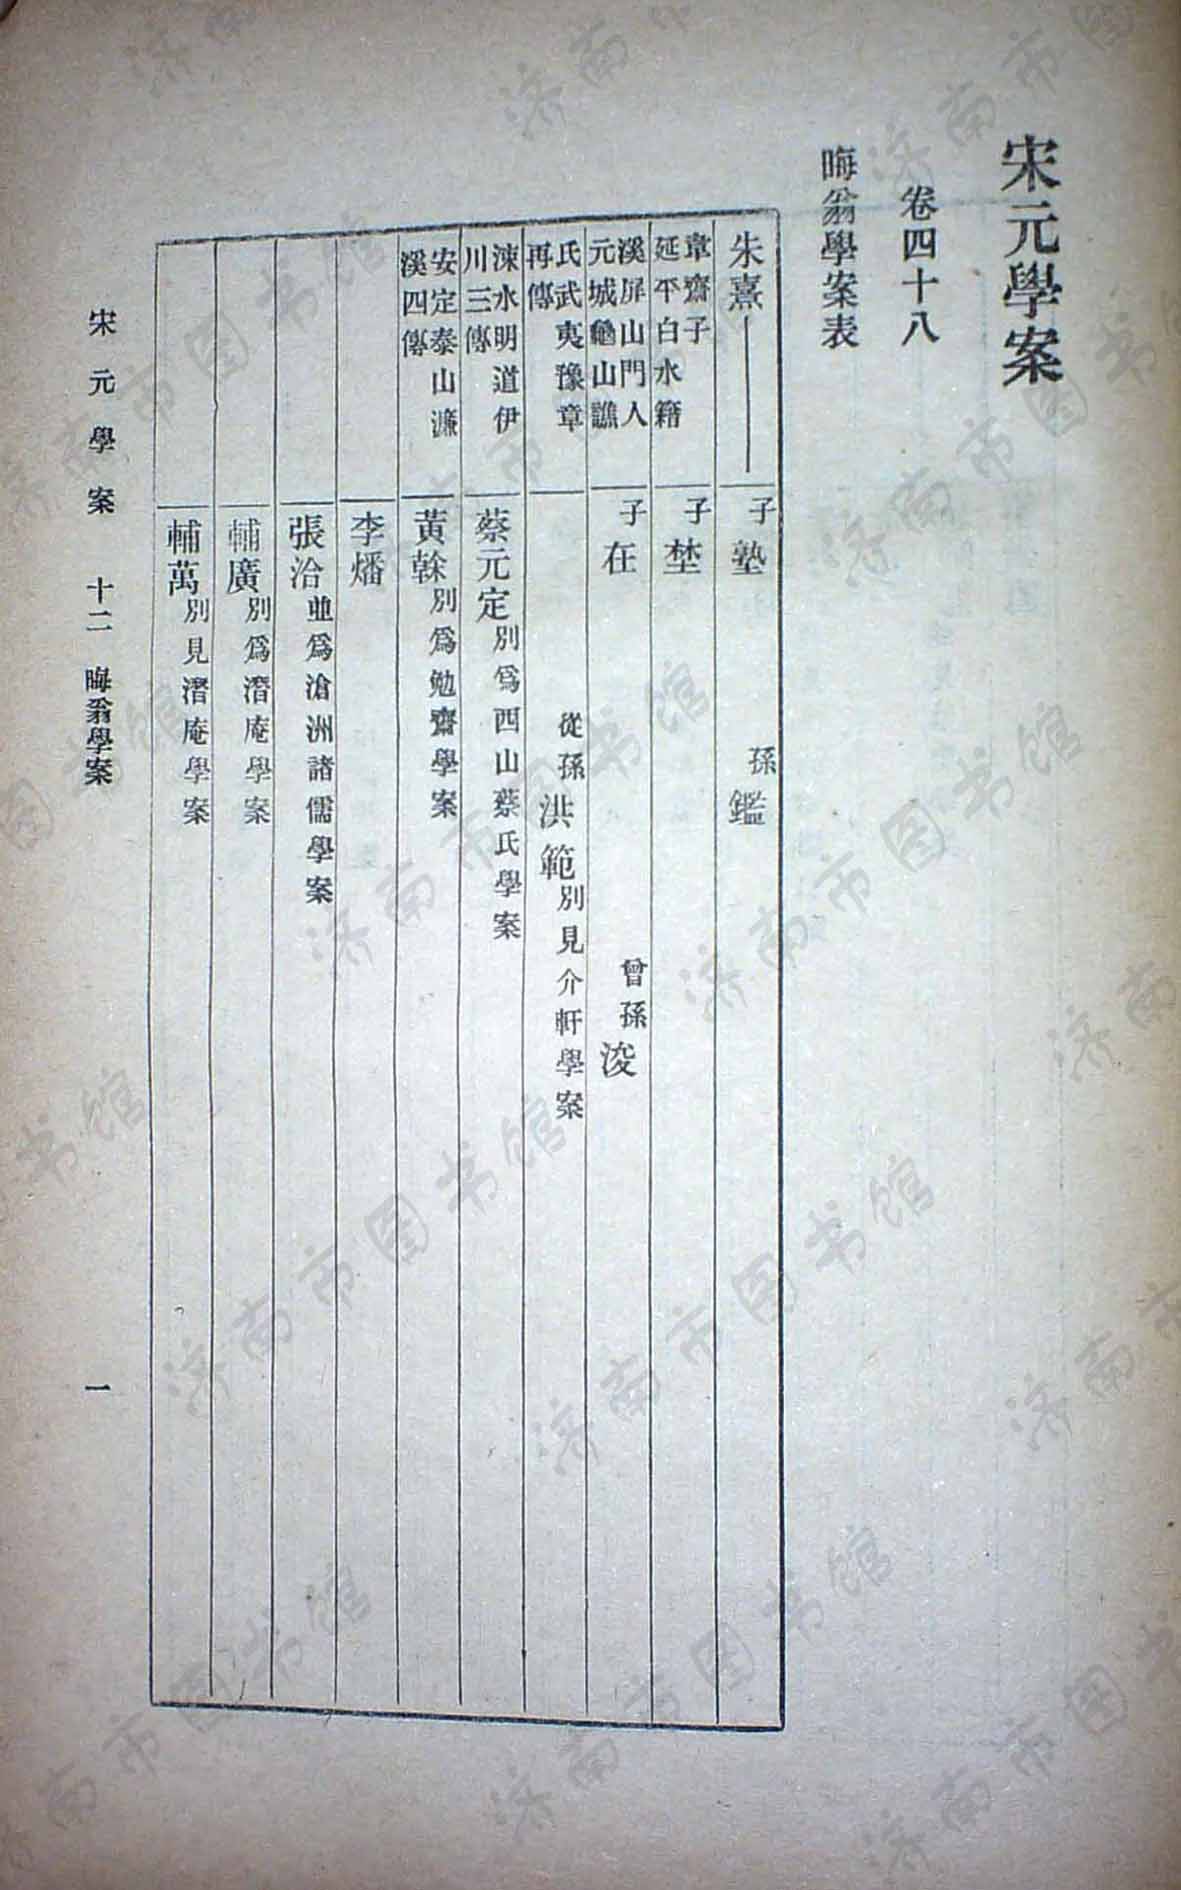 宋元學案
卷四十八
晦翁學案表
朱熹
子塾
孫鑑
韋齋子
延平白水籍
子埜
溪屏山門人
元城龜山譙
子在
曾孫浚
氏武夷豫章
再傳
從孫洪範別見介軒學案
涑水明道伊
川三傳
蔡元定別爲西山蔡氏學案
安定泰山濂
溪四傳
黃榦別爲勉齋學案
李燔
張洽並爲滄洲諸儒學案
輔廣別爲潛庵學案
輔萬別見潛庵學案
宋元學案 十二 晦翁學案 一
济南市图书馆